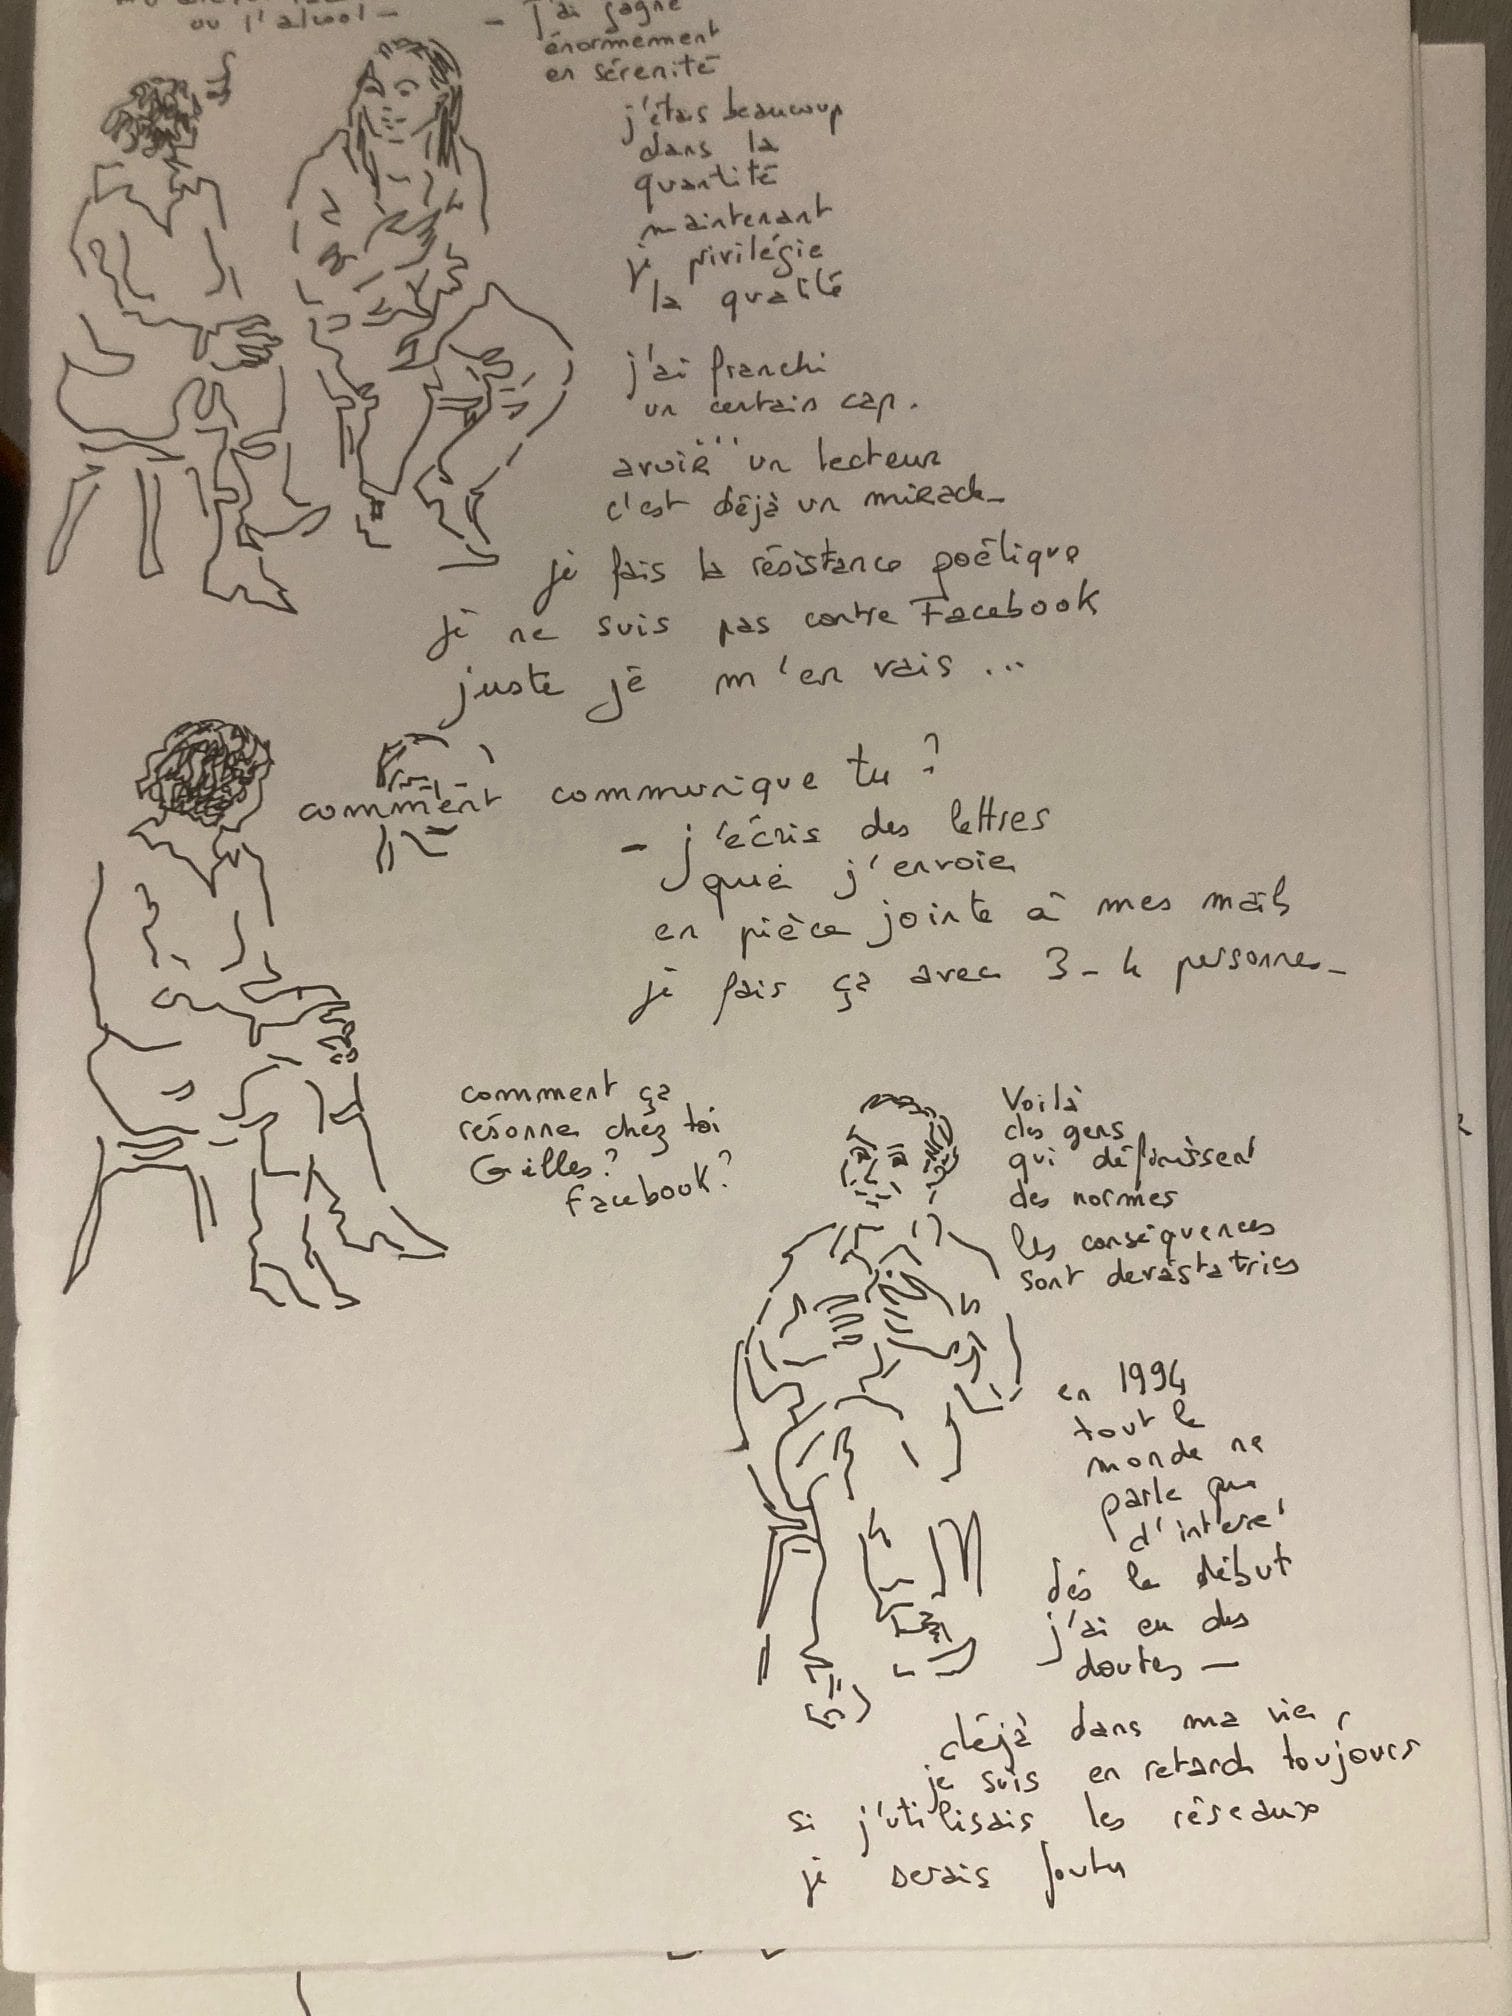 ou l'alcool -
- J'ai gagné
énormément
en sérénité
j'étais beaucoup
dans la
quantité
maintenant
je privilégie
la qualité
j'ai franchi
un certain cap.
avoir "un lecteur
c'est déjà un miracle -
je fais la résistance poétique
je ne suis pas contre Facebook
juste je m'en vais ...
comment communique tu ?
- j'écris des lettres
que j'envoie
en pièce jointe à mes mails
je fais ça avec 3-4 personnes -
comment ça
résonne chez toi
Gilles ?
Facebook ?
Voilà
des gens
qui définissent
des normes
les conséquences
sont dévastatrices
en 1994
tout le
monde ne
parle que
d'interne'
dès le début
j'ai eu des
doutes -
déjà dans ma vie,
je suis en retard toujours
si j'utilisais les réseaux
je serais foutu